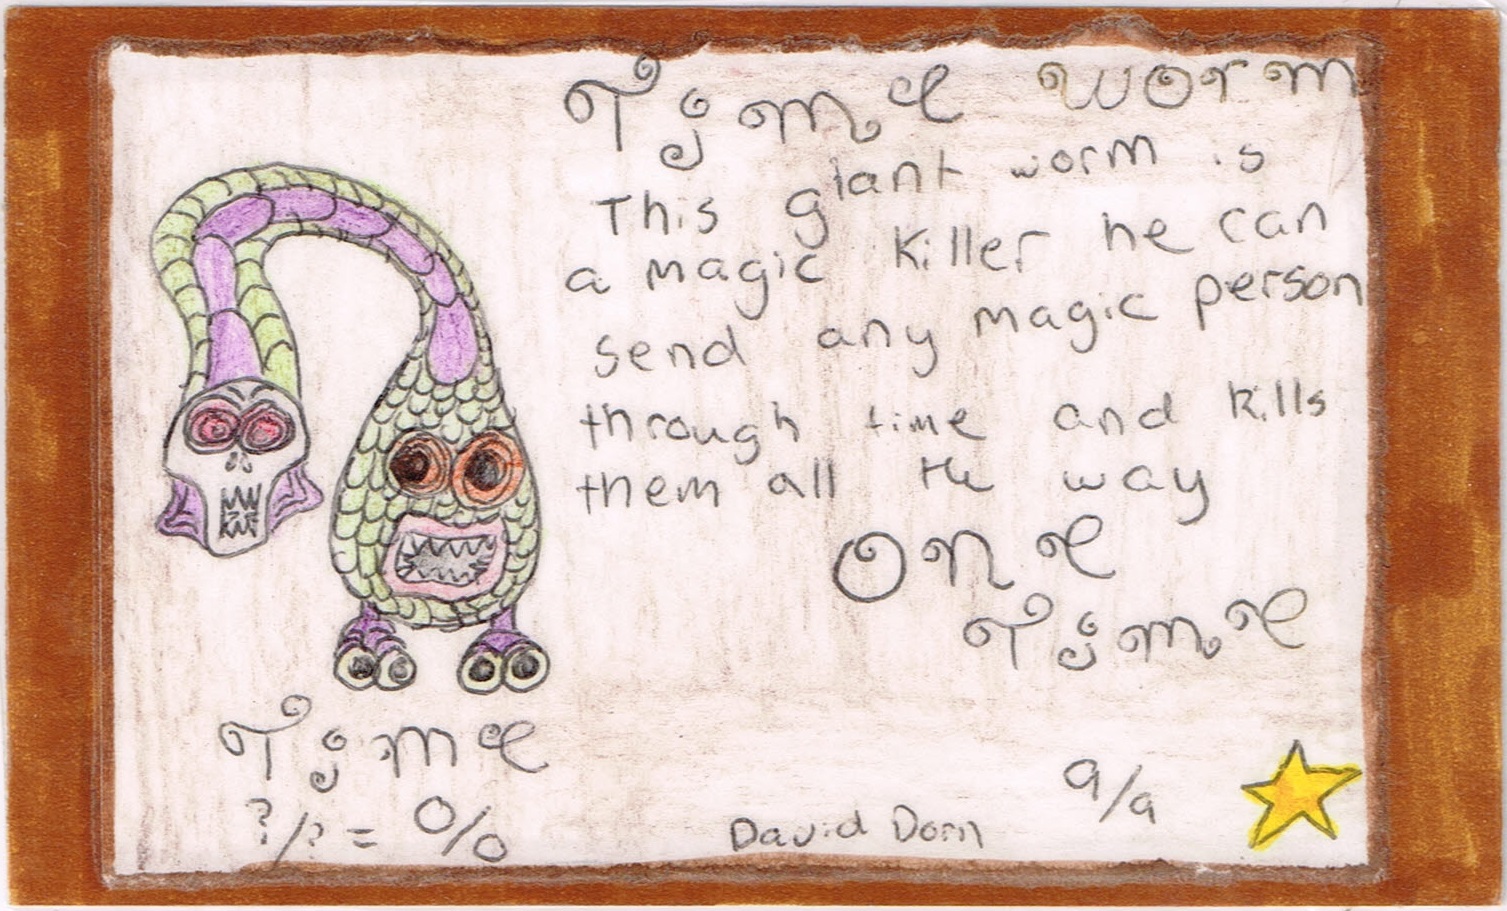 Time worm
This giant worm is
a magic killer he can
send any magic person
through time and kills
them all the way
one
Time
Time
?/? = 0/0
David Dorn
9/9